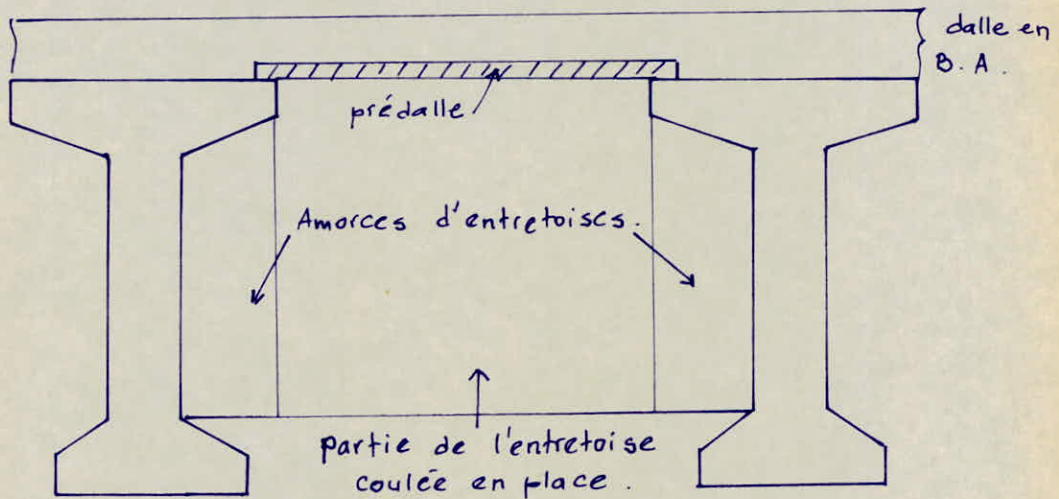 dalle en
B.A.
prédalle
Amorces d'entretoises.
partie de l'entretoise
coulée en place.